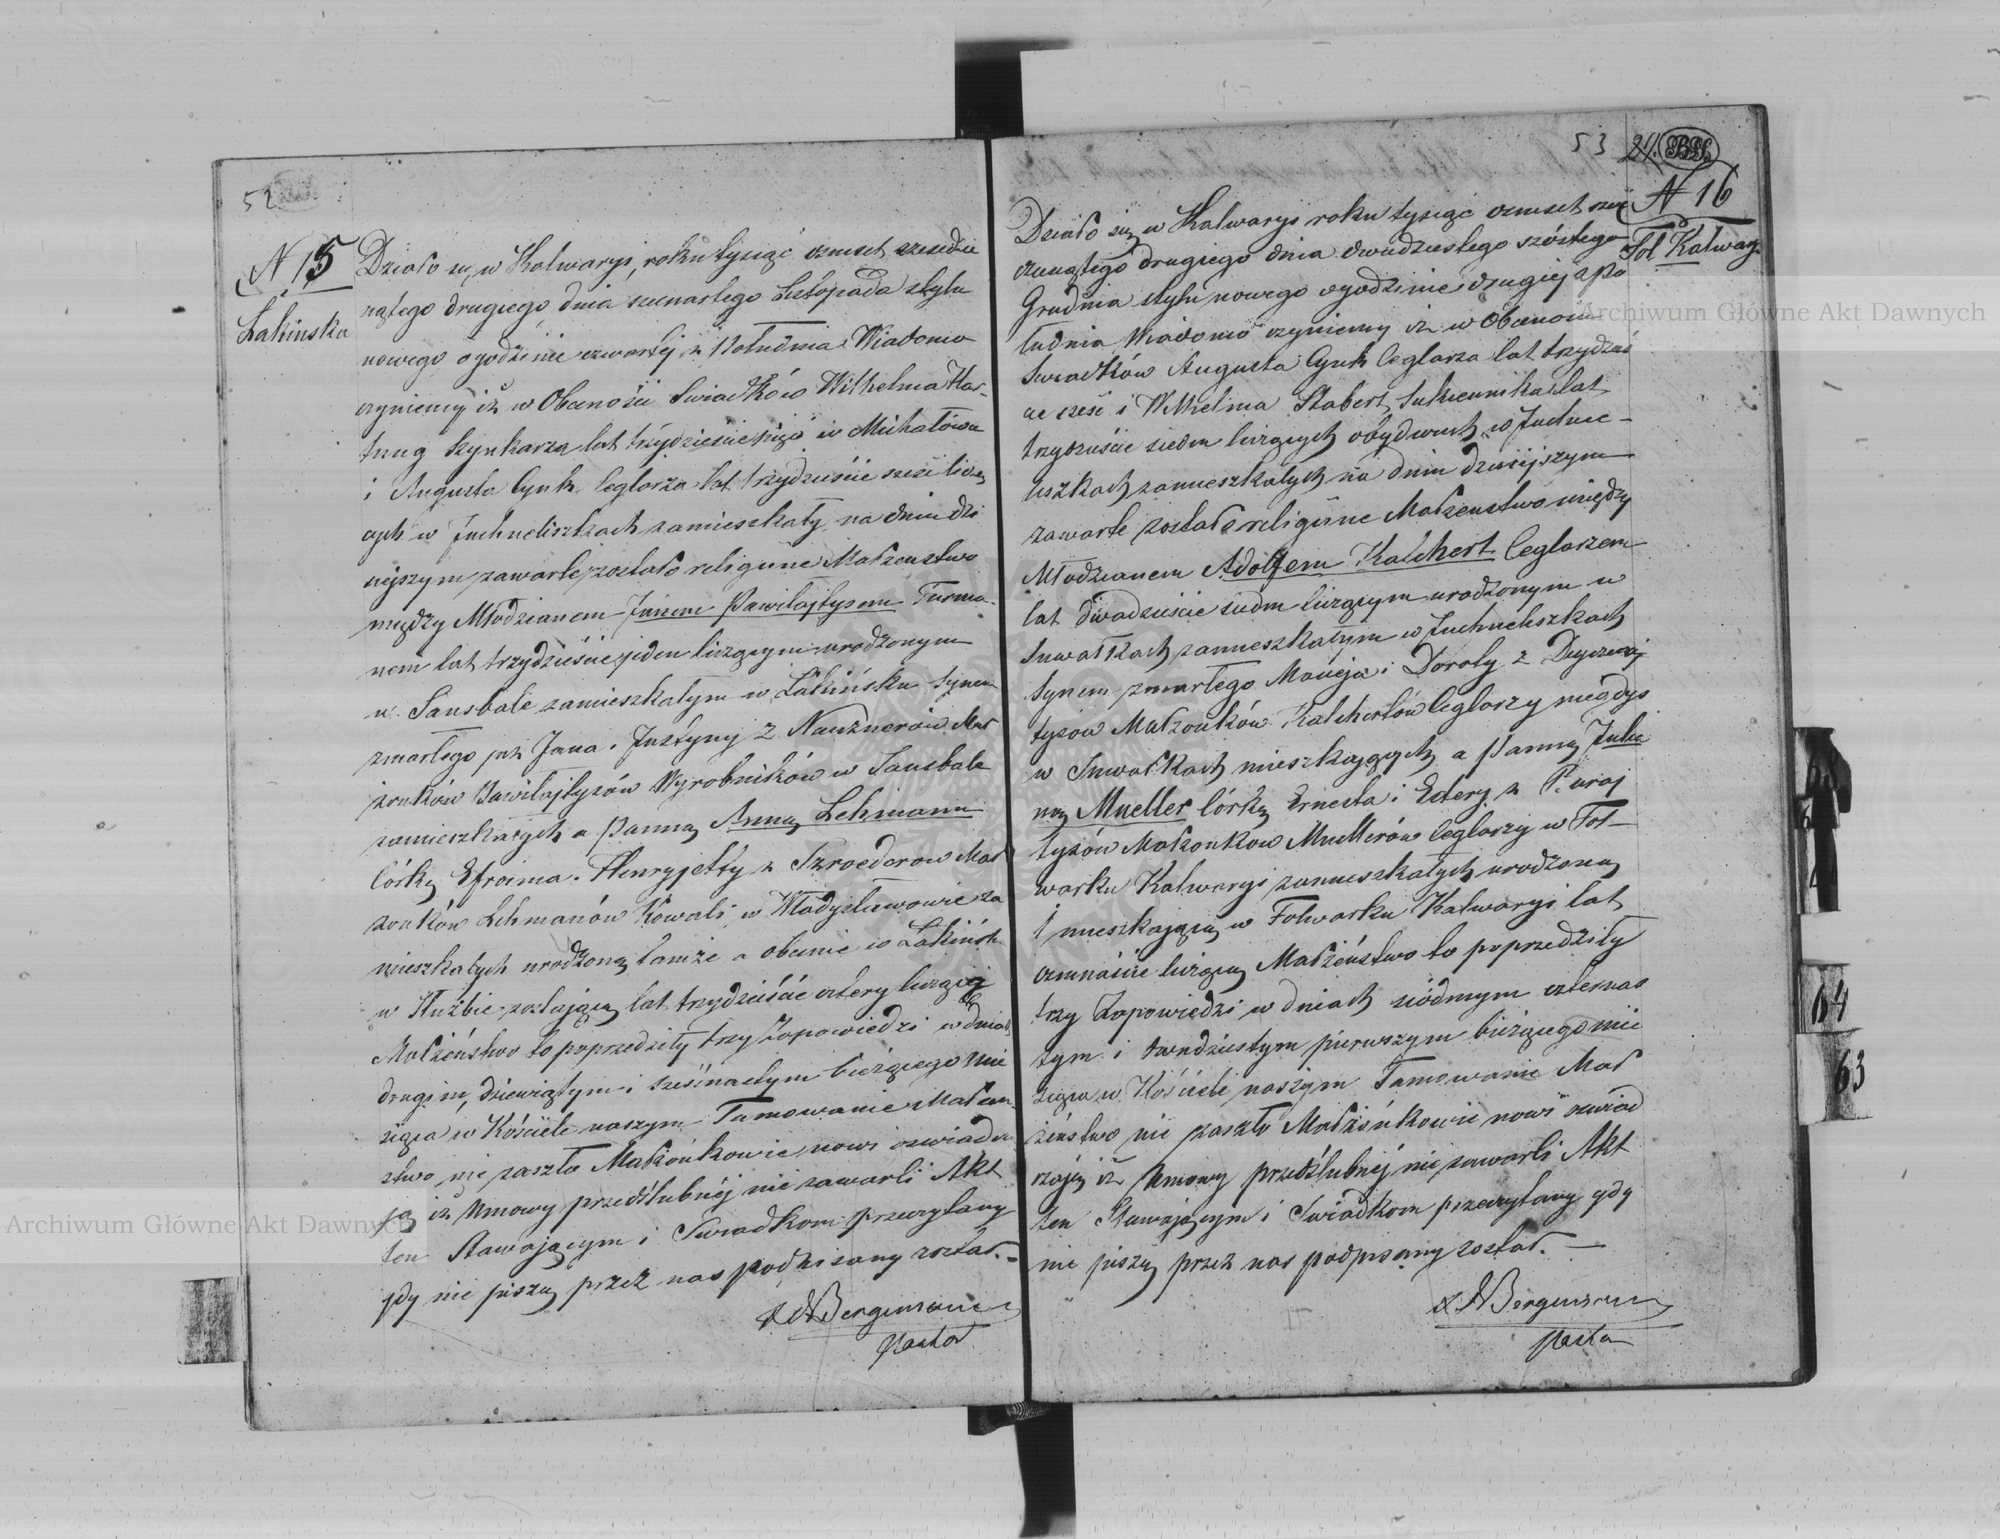 52
N 15
Łakinska
Działo się w Kalwaryi, roku tysiąc osmset szesdzie
siątego drugiego dnia szesnastego Listopada stylu
nowego o godzinie czwartej z Południa Wiadomo
czyniemy iż w Obecności Swiadków Wilhelma Har-
tung Szynkarza lat trzydzieście pięć w Michałowie
i Augusta Cynk Ceglarza lat trzydzieście sześć licz
ących w Juchneliszkach zamieszkały na dniu dzi
siejszym zawarte zostało religijne Małżeństwo
między Młodzianem Janem Pawilajtysem Furma-
nem lat trzydzieście jeden liczącym urodzonym
w Sansbale zamieszkałym w Łakińsku Synem
zmarłego już Jana i Justyny z Nauznerów Mał
żonków Pawilajtysów Wyrobników w Sansbale
zamieszkałych a Panną Anną Lehmann
Córką Efroima i Henryjetty z Szroederow Mał
żonków Lehmanów Kowali w Władysławowie za
mieszkałych urodzoną tamże a obecnie w Łakińsk
w Służbie zostającą lat trzydzieście cztery liczącą
Małżeństwo to poprzedziły trzy Zapowiedzi w dniach
drugim, dziewiątym i szesnastym bieżącego mie
siąca w Kościele naszym Tamowanie Małżeń
stwo nie zaszło Małżonkowie nowi oswiadcza
ją iż Umowy przedślubnéj nie zawarli Akt
ten Stawającym i Swiadkom przeczytany
gdy nie piszą przez nas podpisany został. -
Bergemann
Pastor
53 24.
N 16
Fol Kalwary
Działo się w Kalwaryi roku tysiąc osmset sześ
dziesiątego drugiego dnia dwudziestego szóstego
Grudnia stylu nowego o godzinie drugiej z po
łudnia Wiadomo czyniemy iż w Obecności
Swiadków Augusta Cynk Ceglarza lat trzydzieś
cie sześć i Wilhelma Stabert Sukiennika lat
trzydzieście siedm liczących obydwuch w Juchne-
liszkach zamieszkałych na dniu dzisiejszym
zawarte zostało religijne Małżenstwo między
Młodzianem Adolfem Kalchert Ceglarzem
lat dwadzieście siedm liczącym urodzonym w
Suwałkach zamieszkałym w Juchneliszkach
Synem zmarłego Macieja i Doroty z
tysów Małżonków Kalchertów Ceglarzy niegdyś
w Suwałkach mieszkających a Panną Julia
ną Mueller Córką Ernesta i Estery z Puraj
tysów Małżonkow Muellerów Ceglarzy w Fol-
warku Kalwaryi zamieszkałych urodzoną
i mieszkającą w Folwarku Kalwaryi lat
osmnaście liczącą Małżeństwo to poprzedziły
trzy Zapowiedzi w dniach siódmym czternas
tym i dwudziestym pierwszym bieżącego mie
siąca w Kościele naszym Tamowanie Mał
żeństwo nie zaszło Małżonkowie nowi oswiad
czają iż Umowy przedślubnéj nie zawarli Akt
ten Stawającym i Swiadkom przeczytany gdy
nie piszą przez nas podpisany został. -
Bergemann
Pastor
64
63
Archiwum Główne Akt Dawnych
Archiwum Główne Akt Dawnych